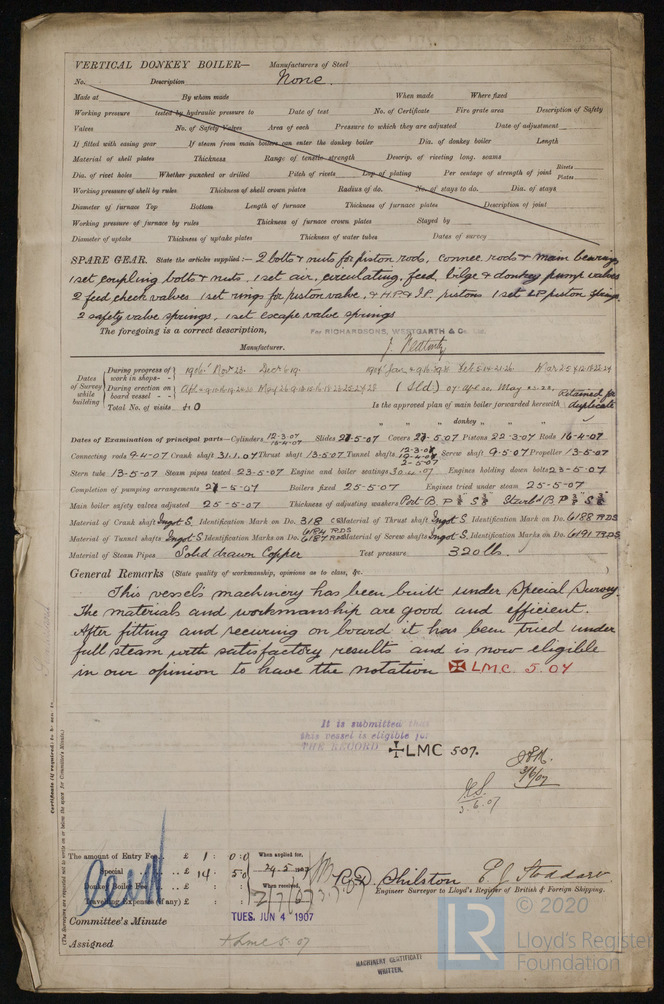 VERTICAL DONKEY BOILER— Manufacturers of Steel
No. Description None.
Made at By whom made When made Where fixed
Working pressure tested by hydraulic pressure to Date of test No. of Certificate Fire grate area Description of Safety
Valves No. of Safety Valves Area of each Pressure to which they are adjusted Date of adjustment
If fitted with easing gear If steam from main boilers can enter the donkey boiler Dia. of donkey boiler Length
Material of shell plates Thickness Range of tensile strength Descrip. of riveting long. seams
Dia. of rivet holes Whether punched or drilled Pitch of rivets Lap of plating Per centage of strength of joint Rivets Plates
Working pressure of shell by rules Thickness of shell crown plates Radius of do. No. of stays to do. Dia. of stays
Diameter of furnace Top Bottom Length of furnace Thickness of furnace plates Description of joint
Working pressure of furnace by rules Thickness of furnace crown plates Stayed by
Diameter of uptake Thickness of uptake plates Thickness of water tubes Dates of survey
SPARE GEAR. State the articles supplied:— 2 bolts & nuts for piston rods, connec. rods & main bearings
1 set coupling bolts & nuts. 1 set air, circulating, feed, bilge & donkey pump valves
2 feed check valves 1 set rings for piston valve, & H.P. & I.P. pistons 1 set L.P. piston
2 safety valve springs, 1 set escape valve springs
The foregoing is a correct description, For RICHARDSONS, WESTGARTH & Co. Ltd.
Manufacturer.
Dates of Survey while building
During progress of work in shops - -
During erection on board vessel - - -
Total No. of visits 40
Is the approved plan of main boiler forwarded herewith Retained for duplicate
" " " donkey " " "
Dates of Examination of principal parts—Cylinders 12-3-07 Slides 21-5-07 Covers 21-5-07 Pistons 22-3-07 Rods 16-4-07
Connecting rods 9-4-07 Crank shaft 31.1.07 Thrust shaft 13-5-07 Tunnel shafts 12-3-07 2-5-07 Screw shaft 9-5-07 Propeller 13-5-07
Stern tube 13-5-07 Steam pipes tested 23-5-07 Engine and boiler seatings 30-4-07 Engines holding down bolts 23-5-07
Completion of pumping arrangements 21-5-07 Boilers fixed 25-5-07 Engines tried under steam 25-5-07
Main boiler safety valves adjusted 25-5-07 Thickness of adjusting washers Port B. P S Starbd B. P S
Material of Crank shaft Ingot S. Identification Mark on Do. 318 Material of Thrust shaft Ingot S. Identification Mark on Do. 6188 T.R.D.S.
Material of Tunnel shafts Ingot S. Identification Marks on Do. 6187 Material of Screw shafts Ingot S. Identification Marks on Do. 6191 T.R.D.S.
Material of Steam Pipes Solid drawn Copper Test pressure 320 lbs.
General Remarks (State quality of workmanship, opinions as to class, &c.
This vessel's machinery has been built under Special Survey.
The materials and workmanship are good and efficient.
After fitting and securing on board it has been tried under
full steam with satisfactory results and is now eligible
in our opinion to have the notation ✠ LMC. 5.07
It is submitted that
this vessel is eligible for
THE RECORD ✠LMC 507.
3/6/07
3.6.07
Certificate (if required) to be sent to
(The Surveyors are requested not to write on or below the space for Committee's Minute.)
The amount of Entry Fee .. £ 1 : 0 : 0 When applied for,
Special .. £ 14 : 5 0 29.5.1907
Donkey Boiler Fee .. £ : : When received,
Travelling Expenses (if any) £ : :
Engineer Surveyor to Lloyd's Register of British & Foreign Shipping.
Committee's Minute TUES. JUN 4 1907
Assigned + LMC 5.07
MACHINERY CERTIFICATE
WRITTEN.
LR © 2020
Lloyd's Register
Foundation